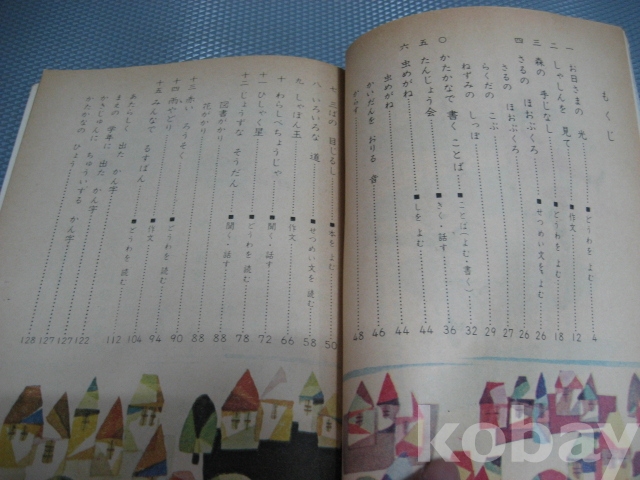 もくじ
一 お日さまの 光 ■どうわを よむ 4
二 しゃしんを 見て ■作文 12
三 森の 手じなし ■どうわを よむ 18
四 さるの ほおぶくろ ■せつめい文を よむ 26
さるの ほおぶくろ 26
らくだの こぶ 27
ねずみの しっぽ 29
○ かたかなで 書く ことば ■ことば(よむ・書く) 32
五 たんじょう会 ■きく・話す 36
六 虫めがね ■しを よむ 44
虫めがね 44
かいだんを おりる 音 46
48
七 しるし 50
八 いろいろな 道 ■せつめい文を 読む 58
九 しゃぼん玉 ■作文 66
十 わらしべちょうじゃ ■聞く・話す 72
十一 ひしゃく星 ■どうわを 読む 78
十二 じょうずな そうだん ■聞く・話す 88
図書がかり 88
花がかり
十三 赤い ろうそく 90
十四 雨やどり ■作文 94
十五 みんなで るすばん ■どうわを 読む 104
あたらしく 出た かん字 112
まえの 学年に 出た かん字 122
かきじゅんに ちゅういする かん字 127
かたかなの ひょう 127
128
kobay